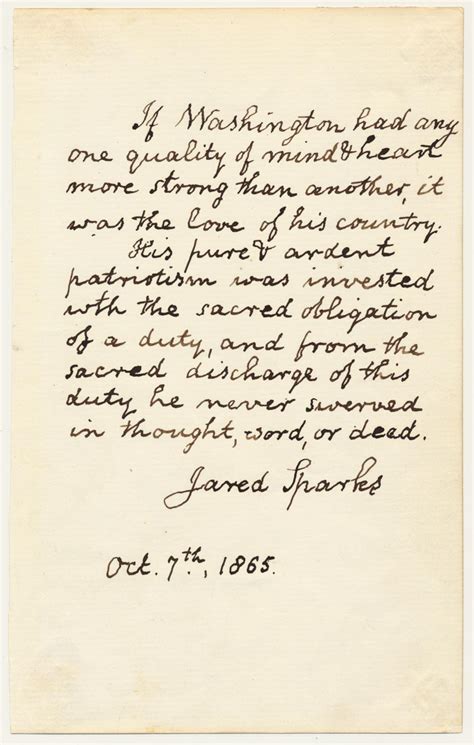 If Washington had any
one quality of mind & heart
more strong than another, it
was the love of his country.
His pure & ardent
patriotism was invested
wth the sacred obligation
of a duty, and from the
sacred discharge of this
duty he never swerved
in thought, word, or dead.
Jared Sparks
Oct. 7th, 1865.